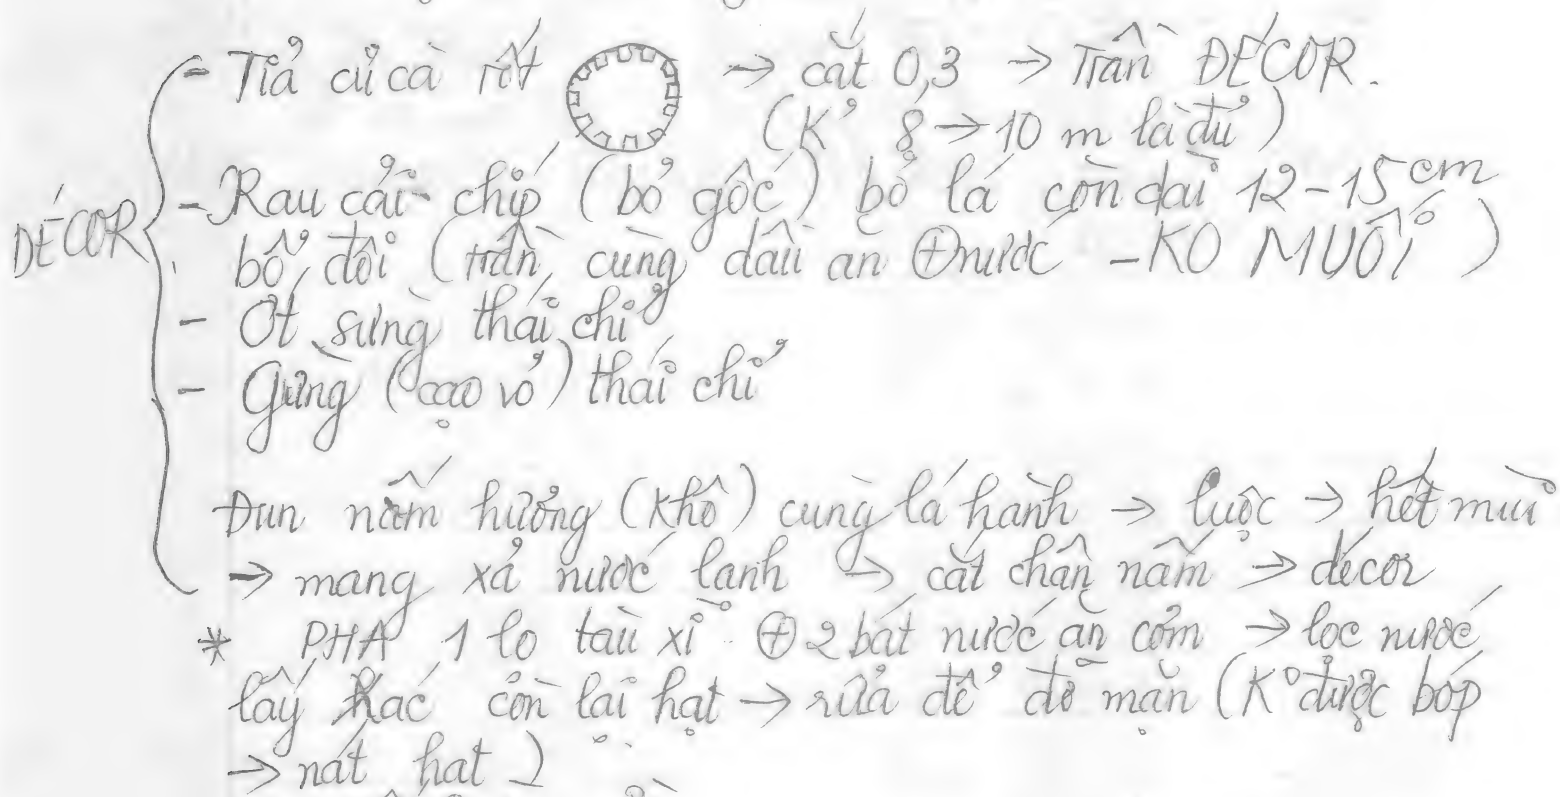 - Tỉa củ cà rốt → cắt 0,3 → Trần DÉCOR.
(K² 8 → 10 m là đủ)
DÉCOR
- Rau cải chíp (bỏ gốc) bỏ lá còn dài 12-15cm
bổ đôi (trần cùng dầu ăn ⊕ nước - KO MUỐI)
- Ớt sừng thái chỉ
- Gừng (cạo vỏ) thái chỉ
Đun nấm hương (khô) cùng lá hành → luộc → hết mùi
→ mang xả nước lạnh → cắt chân nấm → décor
* PHA 1 lọ tàu xì ⊕ 2 bát nước ăn cơm → lọc nước
lấy xác còn lại hạt → rửa để đỡ mặn (K° được bóp
→ nát hạt)